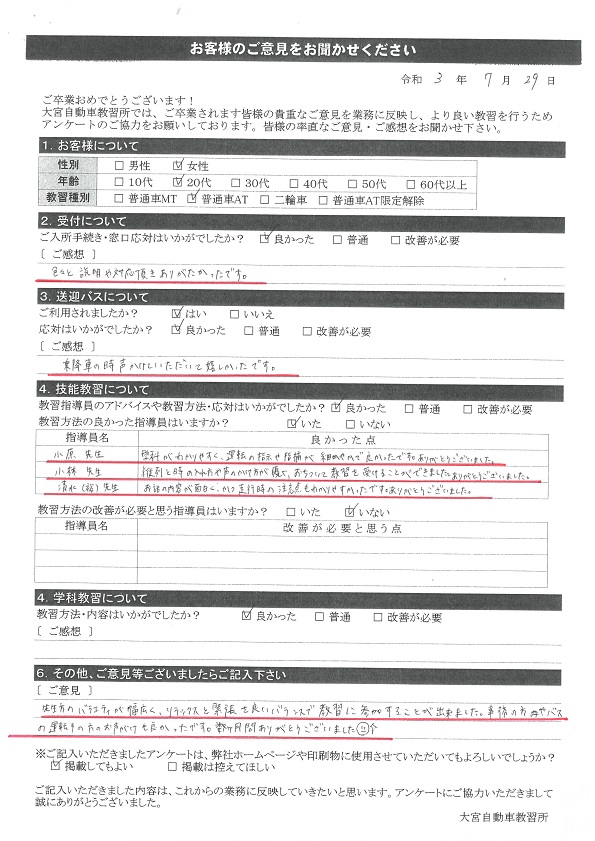 お客様のご意見をお聞かせください
令和 3 年 7 月 29 日
ご卒業おめでとうございます！
大宮自動車教習所では、ご卒業されます皆様の貴重なご意見を業務に反映し、より良い教習を行うため
アンケートのご協力をお願いしております。皆様の率直なご意見・ご感想をお聞かせ下さい。
1. お客様について
性別 □ 男性 ☑ 女性
年齢 □ 10代 ☑ 20代 □ 30代 □ 40代 □ 50代 □ 60代以上
教習種別 □ 普通車MT ☑ 普通車AT □ 二輪車 □ 普通車AT限定解除
2. 受付について
ご入所手続き・窓口応対はいかがでしたか？ ☑ 良かった □ 普通 □ 改善が必要
[ ご感想 ]
色々と説明や対応頂きありがたかったです。
3. 送迎バスについて
ご利用されましたか？ ☑ はい □ いいえ
応対はいかがでしたか？ ☑ 良かった □ 普通 □ 改善が必要
[ ご感想 ]
乗降車の時声かけしていただいて嬉しかったです。
4. 技能教習について
教習指導員のアドバイスや教習方法・応対はいかがでしたか？ ☑ 良かった □ 普通 □ 改善が必要
教習方法の良かった指導員はいますか？ ☑ いた □ いない
指導員名 良かった点
小原 先生 学科がわかりやすく、運転の指示や指摘が細めやかで良かったです。ありがとうございました。
小林 先生 の声のかけ方が優しく、おちついて教習を受けることができましたありがとうございました。
清水(裕)先生 お話の内容が面白く、かつ走行時の注意点もわかりやすかったです。ありがとうございました。
教習方法の改善が必要と思う指導員はいますか？ □ いた ☑ いない
指導員名 改善が必要と思う点
4. 学科教習について
教習方法・内容はいかがでしたか？ ☑ 良かった □ 普通 □ 改善が必要
[ ご感想 ]
6. その他、ご意見等ございましたらご記入下さい
[ ご意見 ]
先生方のバラエティが幅広く、リラックスと緊張を良いバランスで教習に参加することが出来ました。事務の方やバス
の運転手の方のお声がけも良かったです。数ヶ月間ありがとうございました
※ご記入いただきましたアンケートは、弊社ホームページや印刷物に使用させていただいてもよろしいでしょうか？
☑ 掲載してもよい □ 掲載は控えてほしい
ご記入いただきました内容は、これからの業務に反映していきたいと思います。アンケートにご協力いただきまして
誠にありがとうございました。
大宮自動車教習所